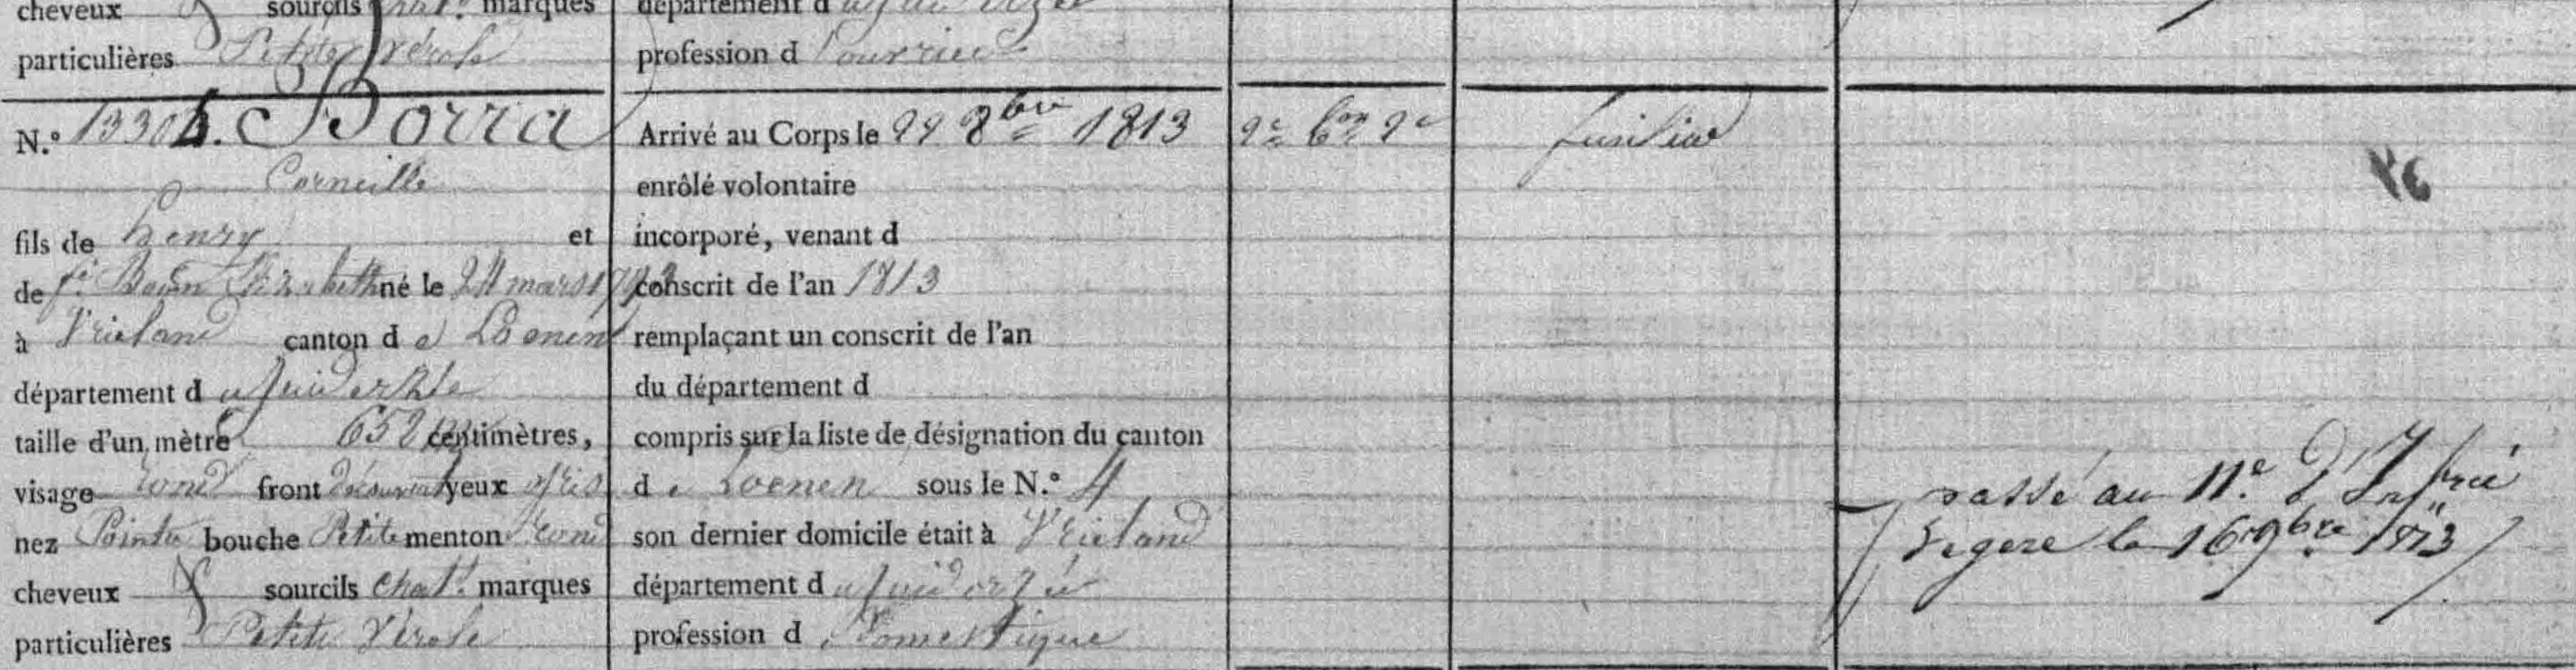 cheveux sourcils chat. marques
particulières Petite Vérole
N.° 13304. Borra
Corneille
fils de henry et
de f.e Boom Elisabeth né le 24 mars 179
à Vrieland canton d e Loenen
département d u Zuiderzée
taille d'un mètre 652 m centimètres,
visage rond front découvert yeux gris
nez Pointu bouche Petite menton rond
cheveux sourcils chat. marques
particulières Petite Vérole
département d u Zuiderzée
profession d
Arrivé au Corps le 22 8bre 1813
enrôlé volontaire
incorporé, venant d
conscrit de l'an 1813
remplaçant un conscrit de l'an
du département d
compris sur la liste de désignation du canton
d e Loenen sous le N.° 4
son dernier domicile était à Vrieland
département d u Zuiderzée
profession d e Domestique
2e bon 2e
fusilier
passé au 11.e d'Infrie
Legere le 16 9bre 1813